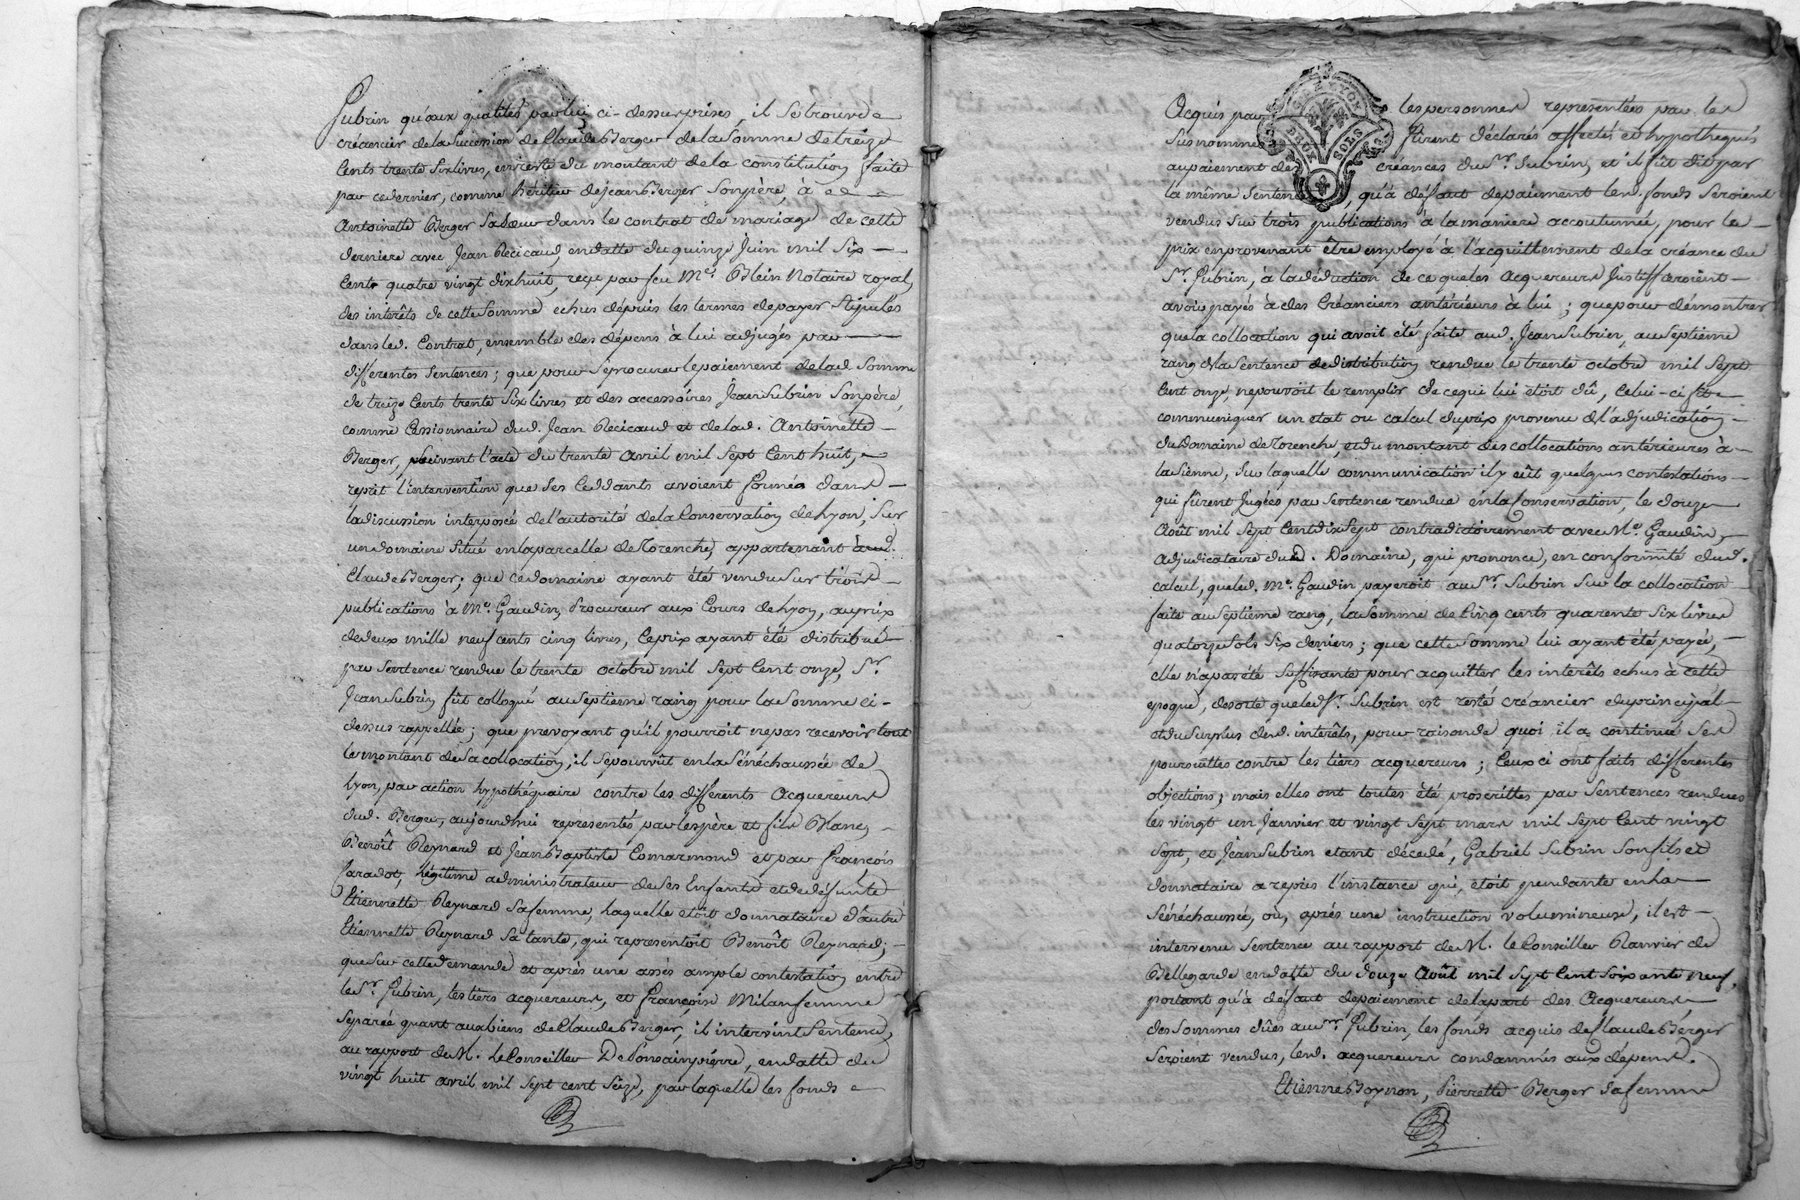 Subrin qu'aux qualités par lui ci-dessus prises, il se trouve
créancier de la Succession de Claude Berger de la Somme de treize
Cents trente Six livres, en reste du montant de la constitution faite
par ce dernier, comme héritier de jean Berger Son père, à
Antoinette Berger Sa Sœur dans le contrat de mariage de cette
derniere avec Jean Recicaud, en datte du quinze Juin mil Six
Cents quatre vingt dix huit, reçu par feu Me. Blein Notaire royal,
des intérêts de cette Somme echus dépuis les termes de payer Stipulés
dans led. Contrat, ensemble des dépens à lui adjugés par
differentes Sentences; que pour Se procurer le paiement de lad. Somme
de treize Cents trente Six livres et des accessoires Jean Subrin Son père,
comme Cessionnaire dud. Jean Recicaud et de lad. Antoinette
Berger, Suivant l'acte du trente avril mil Sept Cent huit,
reprit l'intervention que Ses Cédants avoient formée dans
la discussion interposée de l'autorité de la Conservation de Lyon, Sur
un domaine Situé en la parcelle de Torenche, appartenant aud.
Claude Berger; que ce domaine ayant été vendu Sur trois
publications à Me. Gaudin, Procureur aux Cours de Lyon, au prix
de deux mille neuf cents cinq livres, le prix ayant été distribué
par Sentence rendue le trente octobre mil Sept Cent onze, Sr.
Jean Subrin fût colloqué au Septieme rang pour la Somme ci-
dessus rappellée; que prevoyant qu'il pourroit ne pas recevoir tout
le montant de Sa collocation, il Se pourvût en la Sénéchaussée de
Lyon, par action hypothéquaire contre les différents Acquereurs
dud. Berger, aujourd'hui représentés par les père et fils Blanc,
Benoît Reynard et Jean Baptiste Comarmond et par françois
Jaradot, légitime administrateur de Ses Enfants et de défunte
Etiennette Reynard Sa femme, laquelle etoit donnataire d'autre
Etiennette Reynard Sa tante, qui representoit Benoît Reynard;
que Sur cette demande et après une assés ample contestation entre
le Sr. Subrin, les tiers acquereurs, et françoise Milan femme
Séparée quant aux biens de Claude Berger, il intervint Sentence,
au rapport de M. le Conseiller De Ponsainpierre, en datte du
vingt huit avril mil Sept cent Seize, par laquelle les fonds
Acquis par les personnes représentées par les
Susnommés furent déclarés affectés et hypothequés
au paiement des créances du Sr. Subrin, et il fût dit par
la même Sentence, qu'à défaut de paiement lesd. fonds Seroient
vendus Sur trois publications à la maniere accoutumée, pour le
prix en provenant être employé à l'acquittement de la créance du
Sr. Subrin, à la déduction de ce que les Acquereurs Justiffieroient
avoir payés à des Créanciers antérieurs à lui; que pour démontrer
que la collocation qui avoit été faite aud. Jean Subrin, au Septieme
rang de la Sentence de distribution rendue le trente octobre mil Sept
Cent onze, ne pouvoit le remplir de ce qui lui étoit dû, Celui-ci fit
communiquer un etat ou calcul du prix provenu de l'adjudication
du Domaine de Torenche, et du montant des collocations antérieures à
la Sienne, Sur laquelle communication il y eût quelques contestations
qui fûrent Jugées par Sentence rendue en la Conservation, le douze
Août mil Sept Cent dix Sept contradictoirement avec Me. Gaudin,
Adjudicataire dud. Domaine, qui prononce, en conformité dud.
calcul, que led. Me. Gaudin payeroit au Sr. Subrin Sur la collocation
faite au Septieme rang, la Somme de Cinq cents quarente Six livres
quatorze Sols Six deniers; que cette Somme lui ayant été payée,
elle n'a pas été Suffisante pour acquitter les intérêts echus à cette
epoque, de sorte que led. Sr. Subrin est resté créancier du principal
et du Surplus desd. intérêts, pour raison de quoi il a continué Ses
poursuittes contre les tiers acquereurs; Ceux ci ont faits différentes
objections; mais elles ont toutes été proscrittes par Sentences rendues
les vingt un Janvier et vingt Sept mars mil Sept Cent vingt
Sept, et Jean Subrin etant décédé, Gabriel Subrin Son fils et
donnataire a repris l'instance qui, etoit pendante en la
Sénéchaussée, ou, après une instruction volumineuse, il est
intervenu Sentence au rapport de M. le Conseiller Ranvier de
Bellegarde en datte du douze Août mil Sept Cent Soixante neuf,
portant qu'à défaut de paiement de la part des Acquereurs
des Sommes dûes au Sr. Subrin, les fonds acquis de Claude Berger
Seroient vendus, lesd. acquereurs condamnés aux dépens.
Etienne Boynon, Pierrette Berger Sa femme
GRÉ. LYON
DEUX SOLS